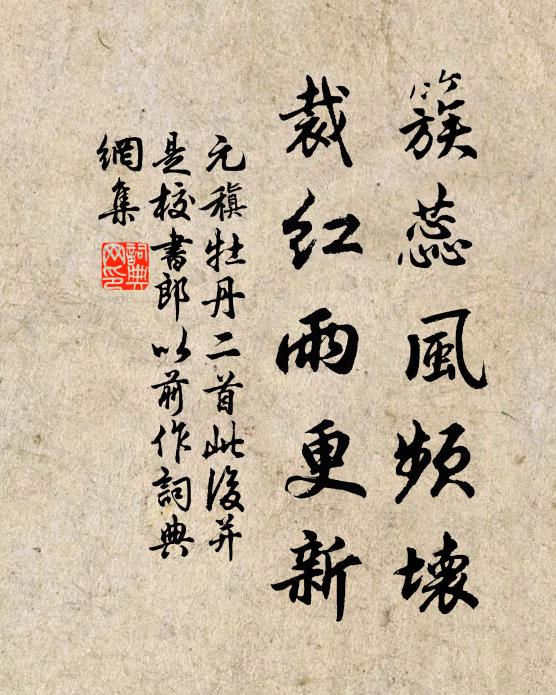 簇蕊風頻壞
裁紅雨更新
元稹牡丹二首此後并
是校書郎以前作詞典
網集
詞典網印